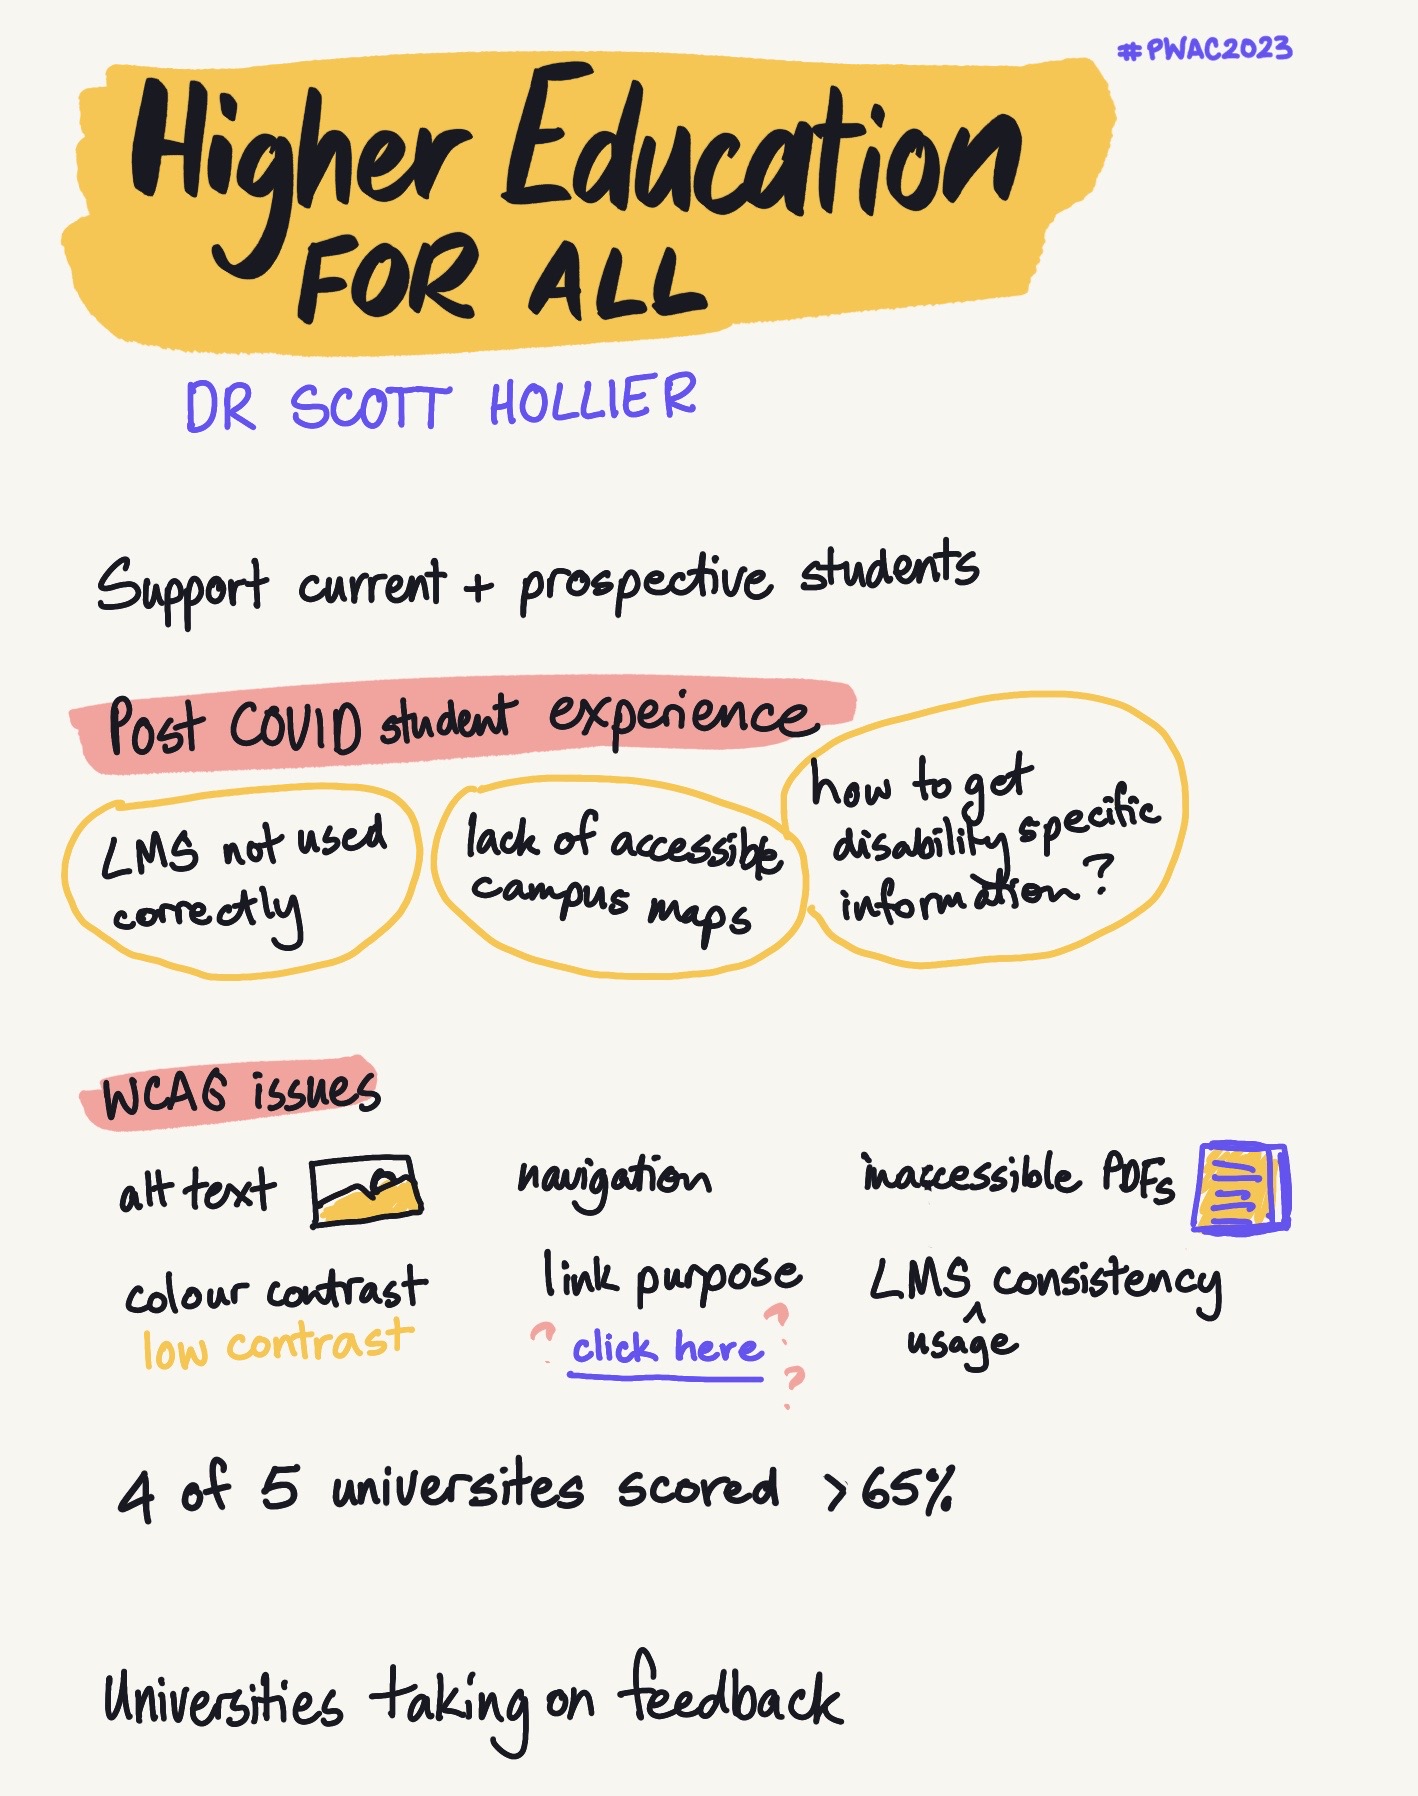 #PWAC2023
Higher Education
FOR ALL
DR SCOTT HOLLIER
Support current + prospective students
Post COVID student experience
LMS not used
correctly
lack of accessible
campus maps
how to get
disability specific
information?
WCAG issues
alt text
navigation
inaccessible PDFs
colour contrast
low contrast
link purpose
? click here ?
?
LMS ^ consistency
usage
4 of 5 universites scored >65%
Universities taking on feedback